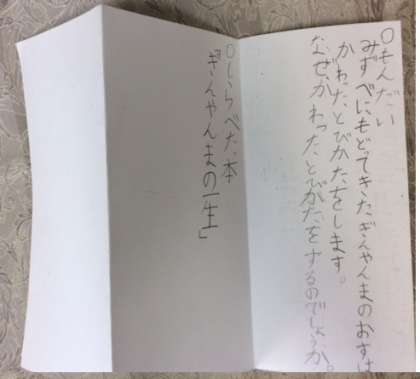 ○もんだい
みずべにもどってきたぎんやんまのおすは
かわったとびかたをします。
なぜ、かわったとびかたをするのでしょうか。
○しらべた本
「ぎんやんまの一生」